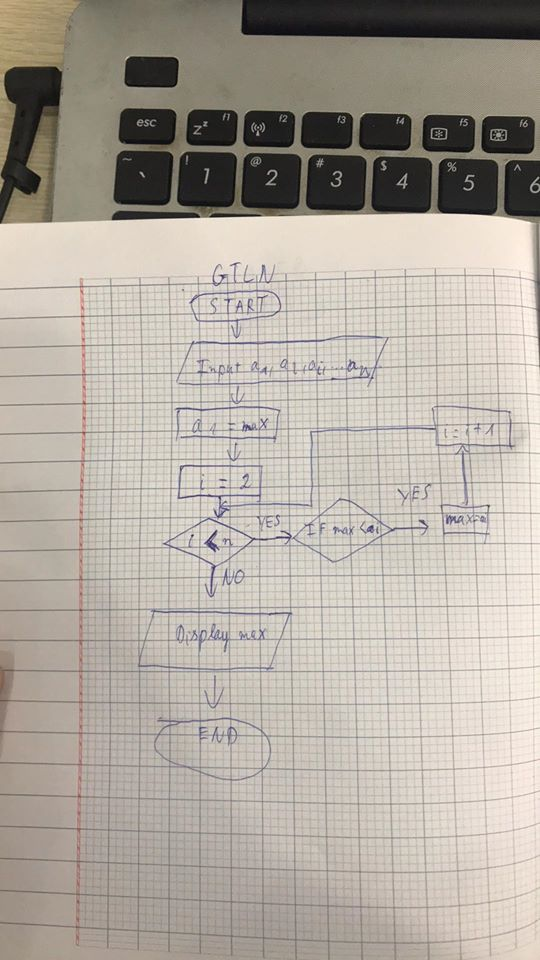 esc
f1
f2
f3
f4
f5
f6
zz
~ `
! 1
@ 2
# 3
$ 4
% 5
^ 6
GTLN
START
Input a1, a2, ai, ... an
a1 = max
i = i + 1
i = 2
YES
YES
i < n
IF max < ai
max = ai
NO
Display max
END